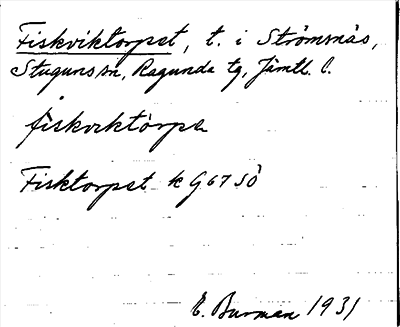 Fiskviktorpet, t. i Strömsnäs,
Stuguns sn, Ragunda tg, Jämtl. l.
fiskvektòrpe
Fisktorpet k G67 SÖ
E. Burman 1931